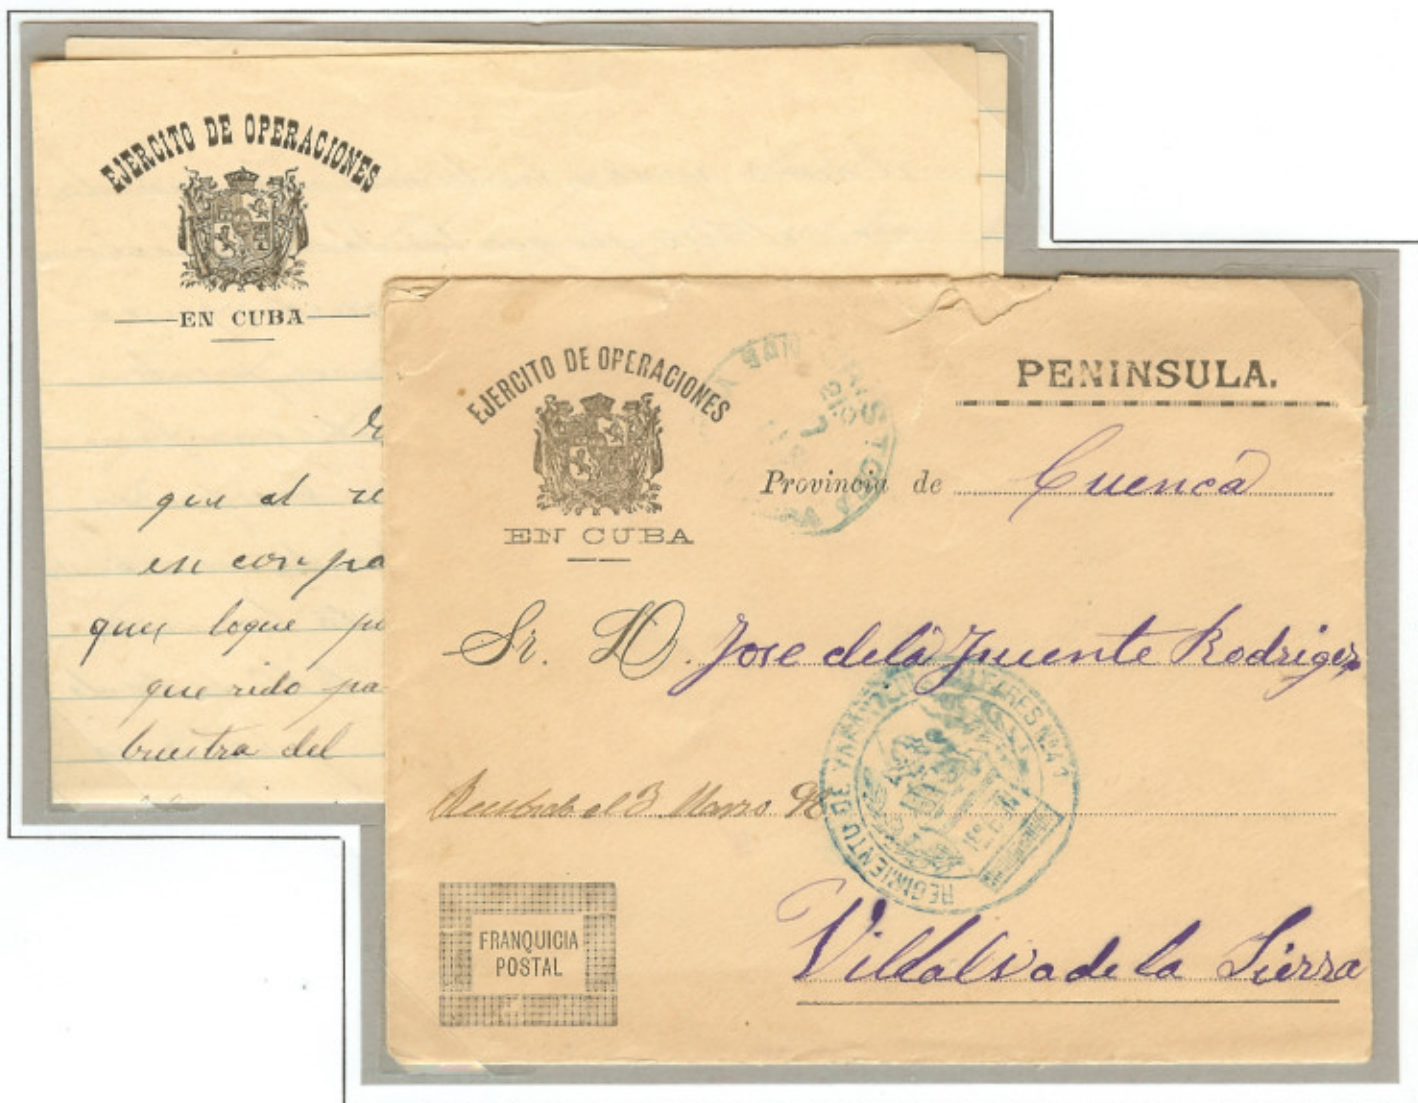 EJERCITO DE OPERACIONES
EN CUBA
que al re
en conpa
ques loque po
que rido pa
buestra del
EJERCITO DE OPERACIONES
EN CUBA
PENINSULA.
Provincia de Cuenca
Sr. D. Jose dela Fuente Rodrigez
REGIMIENTO DE Nº 41
1ER BON
Recibido el 3 Marzo 98
FRANQUICIA
POSTAL
Villalva de la Sierra